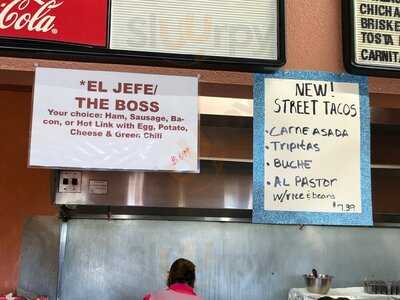 Coca-Cola
*EL JEFE/
THE BOSS
Your choice: Ham, Sausage, Ba-
con, or Hot Link with Egg, Potato,
Cheese & Green Chili
NEW!
STREET TACOS
• CARNE ASADA
• TRIPITAS
• BUCHE
• AL PASTOR
W/RICE & beans
$7.99
CHICH
BRISKE
TOSTA
CARNITA